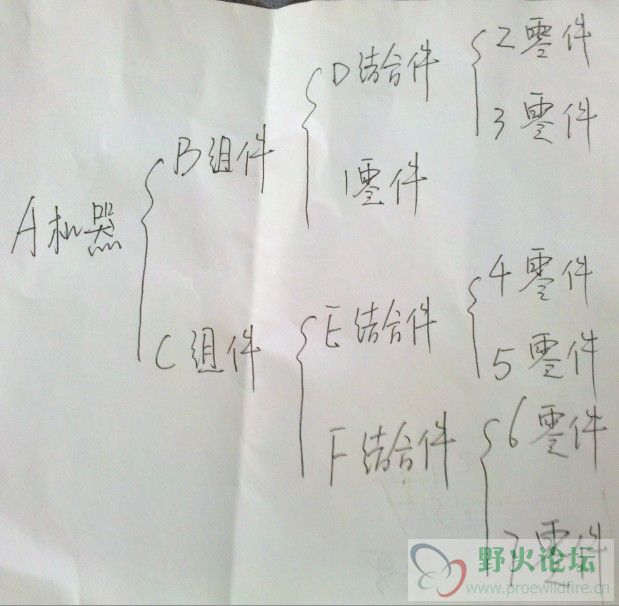 A机器
B组件
D结合件
2零件
3零件
1零件
C组件
E结合件
4零件
5零件
F结合件
6零件
7零件
野火论坛
www.proewildfire.cn